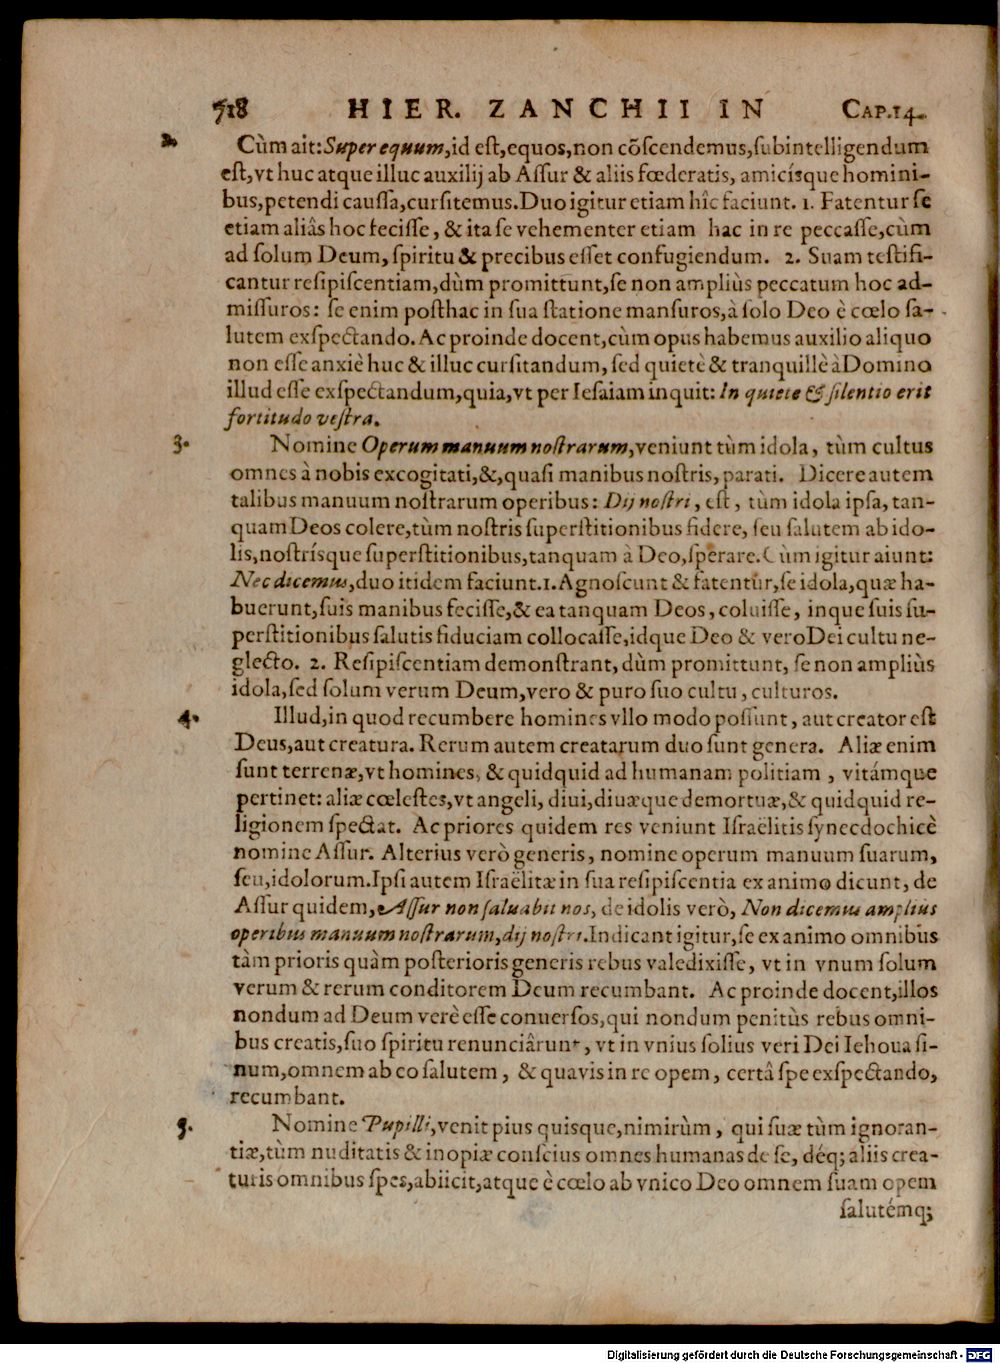 718 HIER. ZANCHII IN CAP.14.
2. Cùm ait: Super equum, id est, equos, non cõscendemus, subintelligendum
est, vt huc atque illuc auxilij ab Assur & aliis fœderatis, amicísque homini-
bus, petendi caussa, cursitemus. Duo igitur etiam hîc faciunt. 1. Fatentur se
etiam aliâs hoc fecisse, & ita se vehementer etiam hac in re peccasse, cùm
ad solum Deum, spiritu & precibus esset confugiendum. 2. Suam testifi-
cantur resipiscentiam, dùm promittunt, se non ampliùs peccatum hoc ad-
missuros: se enim posthac in sua statione mansuros, à solo Deo è cœlo sa-
lutem exspectando. Ac proinde docent, cùm opus habemus auxilio aliquo
non esse anxiè huc & illuc cursitandum, sed quietè & tranquillè à Domino
illud esse exspectandum, quia, vt per Iesaiam inquit: In quiete & silentio erit
fortitudo vestra.
3. Nomine Operum manuum nostrarum, veniunt tùm idola, tùm cultus
omnes à nobis excogitati, &, quasi manibus nostris, parati. Dicere autem
talibus manuum nostrarum operibus: Dij nostri, est, tùm idola ipsa, tan-
quam Deos colere, tùm nostris superstitionibus fidere, seu salutem ab ido-
lis, nostrísque superstitionibus, tanquam à Deo, sperare. Cùm igitur aiunt:
Nec dicemus, duo itidem faciunt. 1. Agnoscunt & fatentur, se idola, quæ ha-
buerunt, suis manibus fecisse, & ea tanquam Deos, coluisse, inque suis su-
perstitionibus salutis fiduciam collocasse, idque Deo & vero Dei cultu ne-
glecto. 2. Resipiscentiam demonstrant, dùm promittunt, se non ampliùs
idola, sed solum verum Deum, vero & puro suo cultu, culturos.
4. Illud, in quod recumbere homines vllo modo possunt, aut creator est
Deus, aut creatura. Rerum autem creatarum duo sunt genera. Aliæ enim
sunt terrenæ, vt homines, & quidquid ad humanam politiam, vitámque
pertinet: aliæ cœlestes, vt angeli, diui, diuæque demortuæ, & quidquid re-
ligionem spectat. Ac priores quidem res veniunt Israëlitis synecdochicè
nomine Assur. Alterius verò generis, nomine operum manuum suarum,
seu, idolorum. Ipsi autem Israëlitæ in sua resipiscentia ex animo dicunt, de
Assur quidem, Assur non saluabit nos, de idolis verò, Non dicemus amplius
operibus manuum nostrarum, dij nostri. Indicant igitur, se ex animo omnibus
tàm prioris quàm posterioris generis rebus valedixisse, vt in vnum solum
verum & rerum conditorem Deum recumbant. Ac proinde docent, illos
nondum ad Deum verè esse conuersos, qui nondum penitùs rebus omni-
bus creatis, suo spiritu renunciârunt, vt in vnius solius veri Dei Iehoua si-
num, omnem ab eo salutem, & quavis in re opem, certâ spe exspectando,
recumbant.
5. Nomine Pupilli, venit pius quisque, nimirùm, qui suæ tùm ignoran-
tiæ, tùm nuditatis & inopiæ conscius omnes humanas de se, déq; aliis crea-
turis omnibus spes, abiicit, atque è cœlo ab vnico Deo omnem suam opem
salutémq;
Digitalisierung gefördert durch die Deutsche Forschungsgemeinschaft - DFG